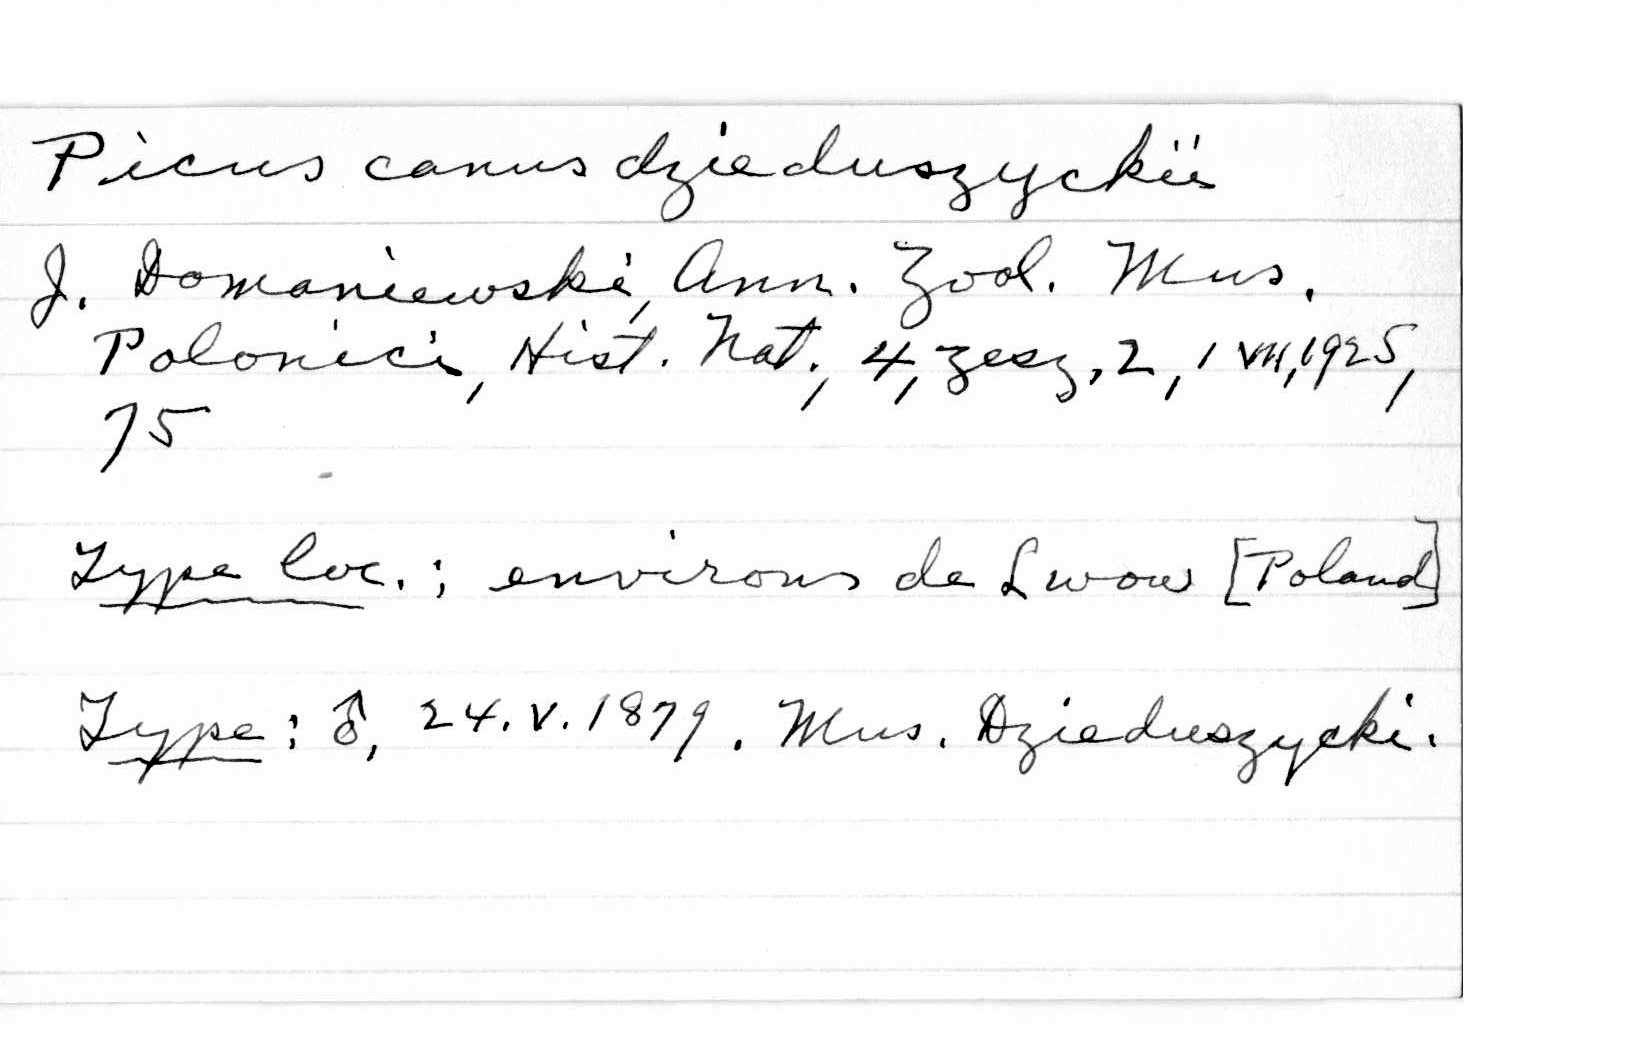 Picus canus dzieduszyckii
J. Domaniewski, Ann. Zool. Mus.
Polonici, Hist. Nat., 4, zesz, 2, 1 VII, 1925,
75
Type loc.: environs de Lwow [Poland]
Type: ♂, 24.V.1879. Mus. Dzieduszycki.